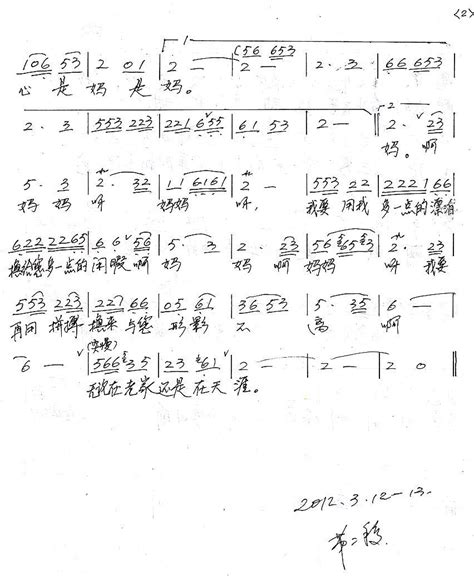 <2>
1
(56 653
106 53 | 2 01 | 2 — | 2 — | 2 · 3 | 66 653
心是妈是妈。
2
2 · 3 | 553 223 | 221 655 | 61 53 | 2 — | 2 · 23
妈。啊
5 · 3 | 2 · 32 | 11 6161 | 2 — | 553 22 | 2221 66
妈妈呀妈妈呀,我要用我多一点的
622 2265 | 6 6 56 | 5 · 3 | 2 · 23 | 56 6563 | 2 · 23
多一点的闲暇啊妈妈啊妈妈呀我要
553 223 | 227 66 | 05 61 | 36 53 | 5 · 35 | 6 —
再用拼搏换来与您形影不离啊
6 — | 566 35 | 23 61 | 2 — | 2 — | 2 0 ‖
在老家还是在天涯。
2012.3.12—13.
第二稿